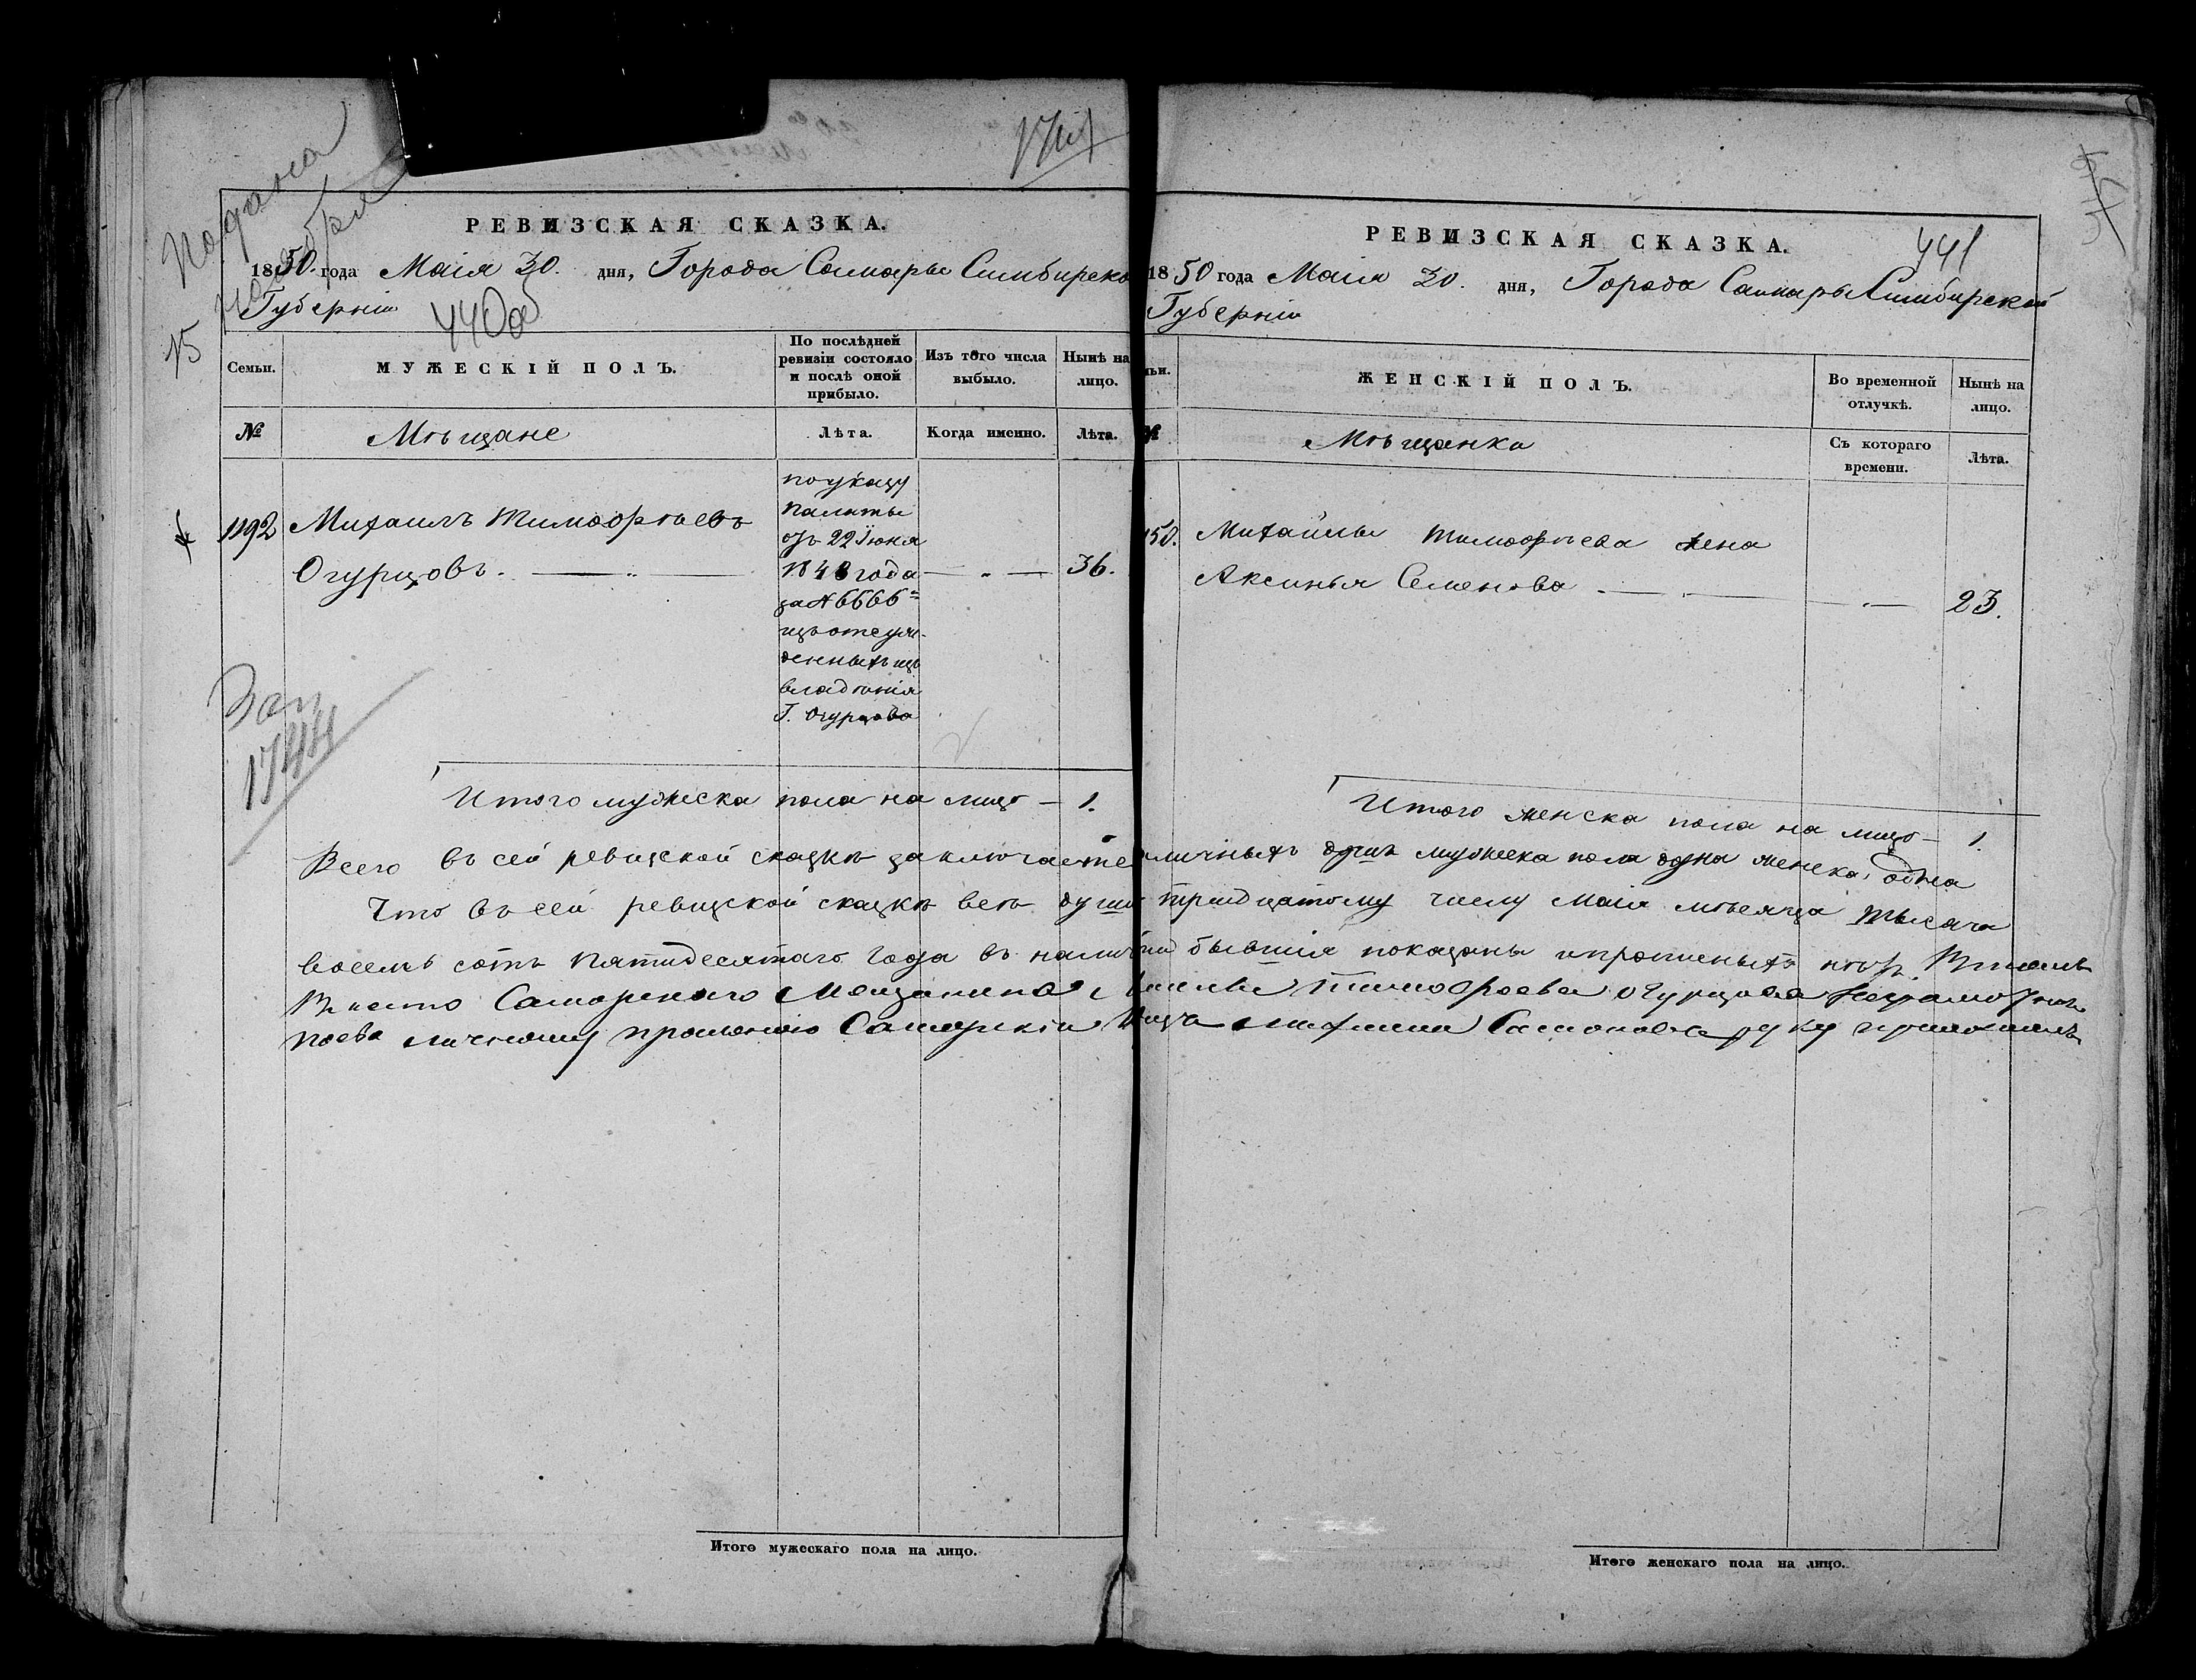 Подана
ноября
15
РЕВИЗСКАЯ СКАЗКА.
1850. года Маія 30. дня, Города Самары Симбирско
Губерніи
440об
Семьи.
МУЖЕСКІЙ ПОЛЪ.
По послѣдней ревизіи состояло и послѣ оной прибыло.
Изъ того числа выбыло.
Нынѣ на лицо.
№
Мѣщане
Лѣта.
Когда именно.
Лѣта.
1192
Михаилъ Тимофѣевъ
Огурцовъ.
по указу
палаты
отъ 22 Іюня
1848 года
за № 6666
изъ отсуж-
денныхъ изъ
владѣнія
Г. Огурцова
36.
Зап
1744
Итого мужеска пола на лицо — 1.
РЕВИЗСКАЯ СКАЗКА.
441
1850 года Маія 30. дня, Города Самары Симбирской
Губерніи
ьи.
ЖЕНСКІЙ ПОЛЪ.
Во временной отлучкѣ.
Нынѣ на лицо.
№
Мѣщанка
Съ котораго времени.
Лѣта.
150.
Михайлы Тимофѣева жена
Аксинья Семенова
23.
Итого женска пола на лицо — 1.
Всего въ сей ревизской сказкѣ заключается личныхъ душъ мужеска пола одна женска одна
Что въ сей ревизской сказкѣ всѣ души тридцатому числу Маія мѣсяца тысяча
восемь сотъ пятидесятаго года въ наличіи бывшія показаны и прописныхъ нѣтъ. Въ томъ
Вместо Самарскаго Мещанина Тимофеева Огурцова неграмотнаго
поево личному прошенію Самарскій руку приложилъ
Итого мужескаго пола на лицо.
Итого женскаго пола на лицо.